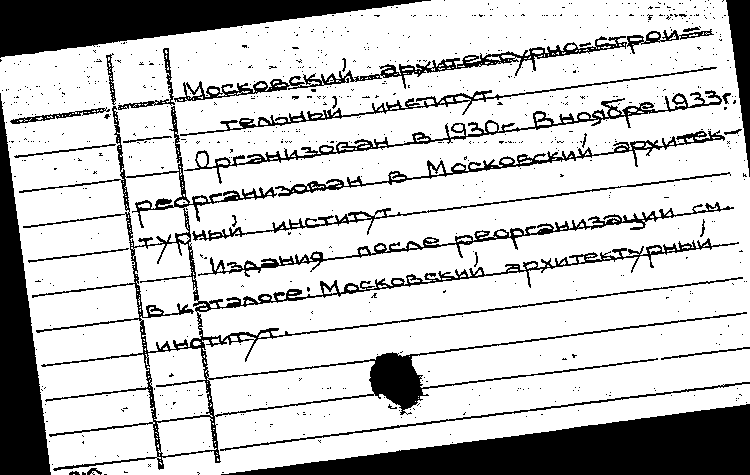 Московский архитектурно-строи-
тельный институт.
Организован в 1930г. В ноябре 1933г.
реорганизован в Московский архитек-
турный институт.
Издания после реорганизации см.
в каталоге: Московский архитектурный
институт.